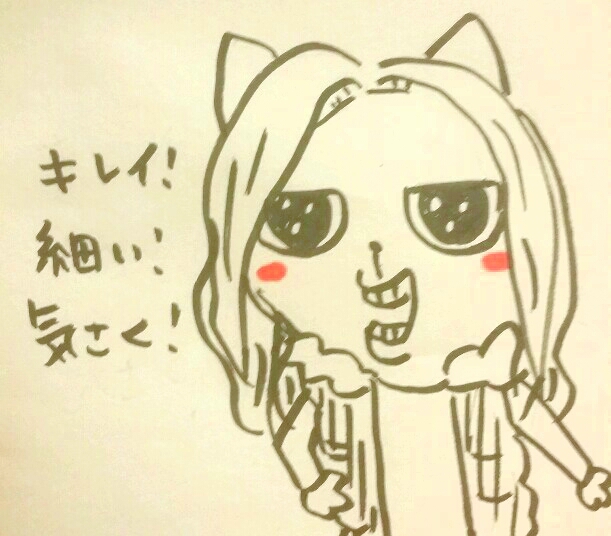 キレイ!
細い!
気さく!